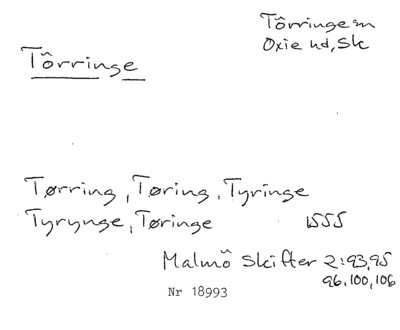 Törringe sn
Oxie hd, Sk
Törringe
Tørring, Tøring, Tyringe
Tyrynge, Tøringe 1555
Malmö Skifter 2:93,95
96,100,106
Nr 18993